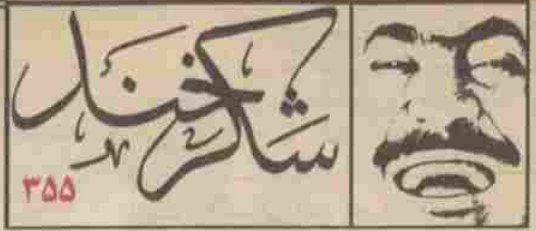 شکرخند
۳۵۵